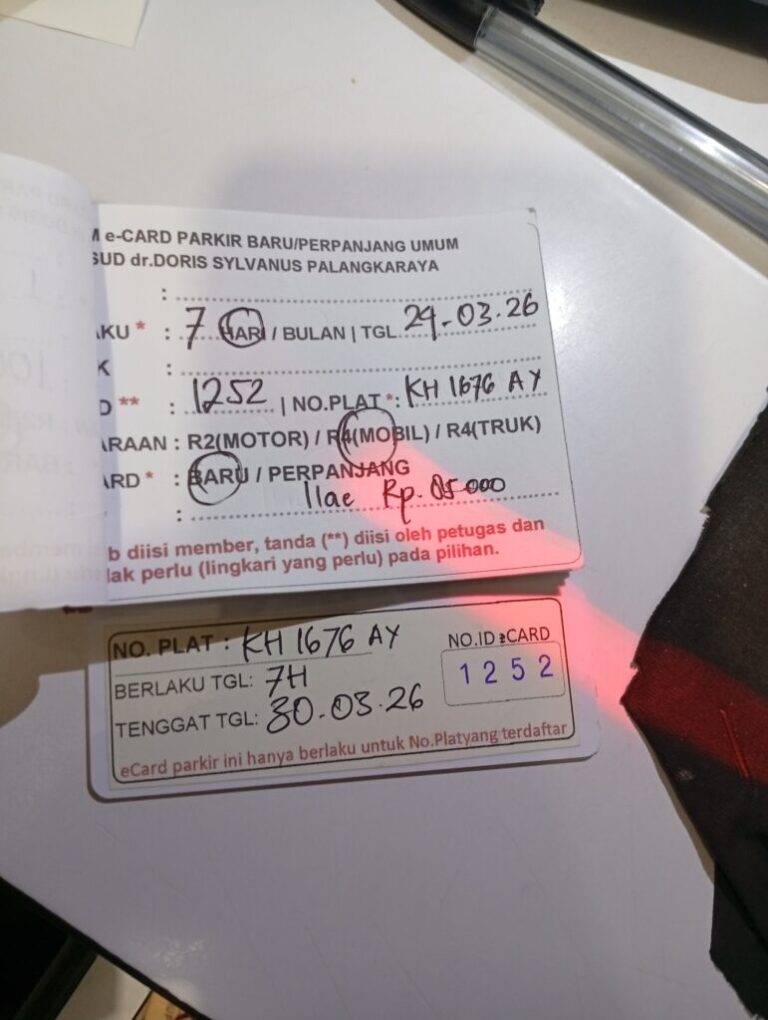 e-CARD PARKIR BARU/PERPANJANG UMUM
SUD dr.DORIS SYLVANUS PALANGKARAYA
:
AKU * : 7 HARI / BULAN | TGL 24-03-26
K :
D ** : 1252 | NO.PLAT *: KH 1676 AY
ARAAN : R2(MOTOR) / R4(MOBIL) / R4(TRUK)
ARD * : BARU / PERPANJANG
: Rp.
b diisi member, tanda (**) diisi oleh petugas dan
dak perlu (lingkari yang perlu) pada pilihan.
NO. PLAT : KH 1676 AY
BERLAKU TGL: 7H
TENGGAT TGL: 30-03-26
NO.ID eCARD
1252
eCard parkir ini hanya berlaku untuk No.Platyang terdaftar